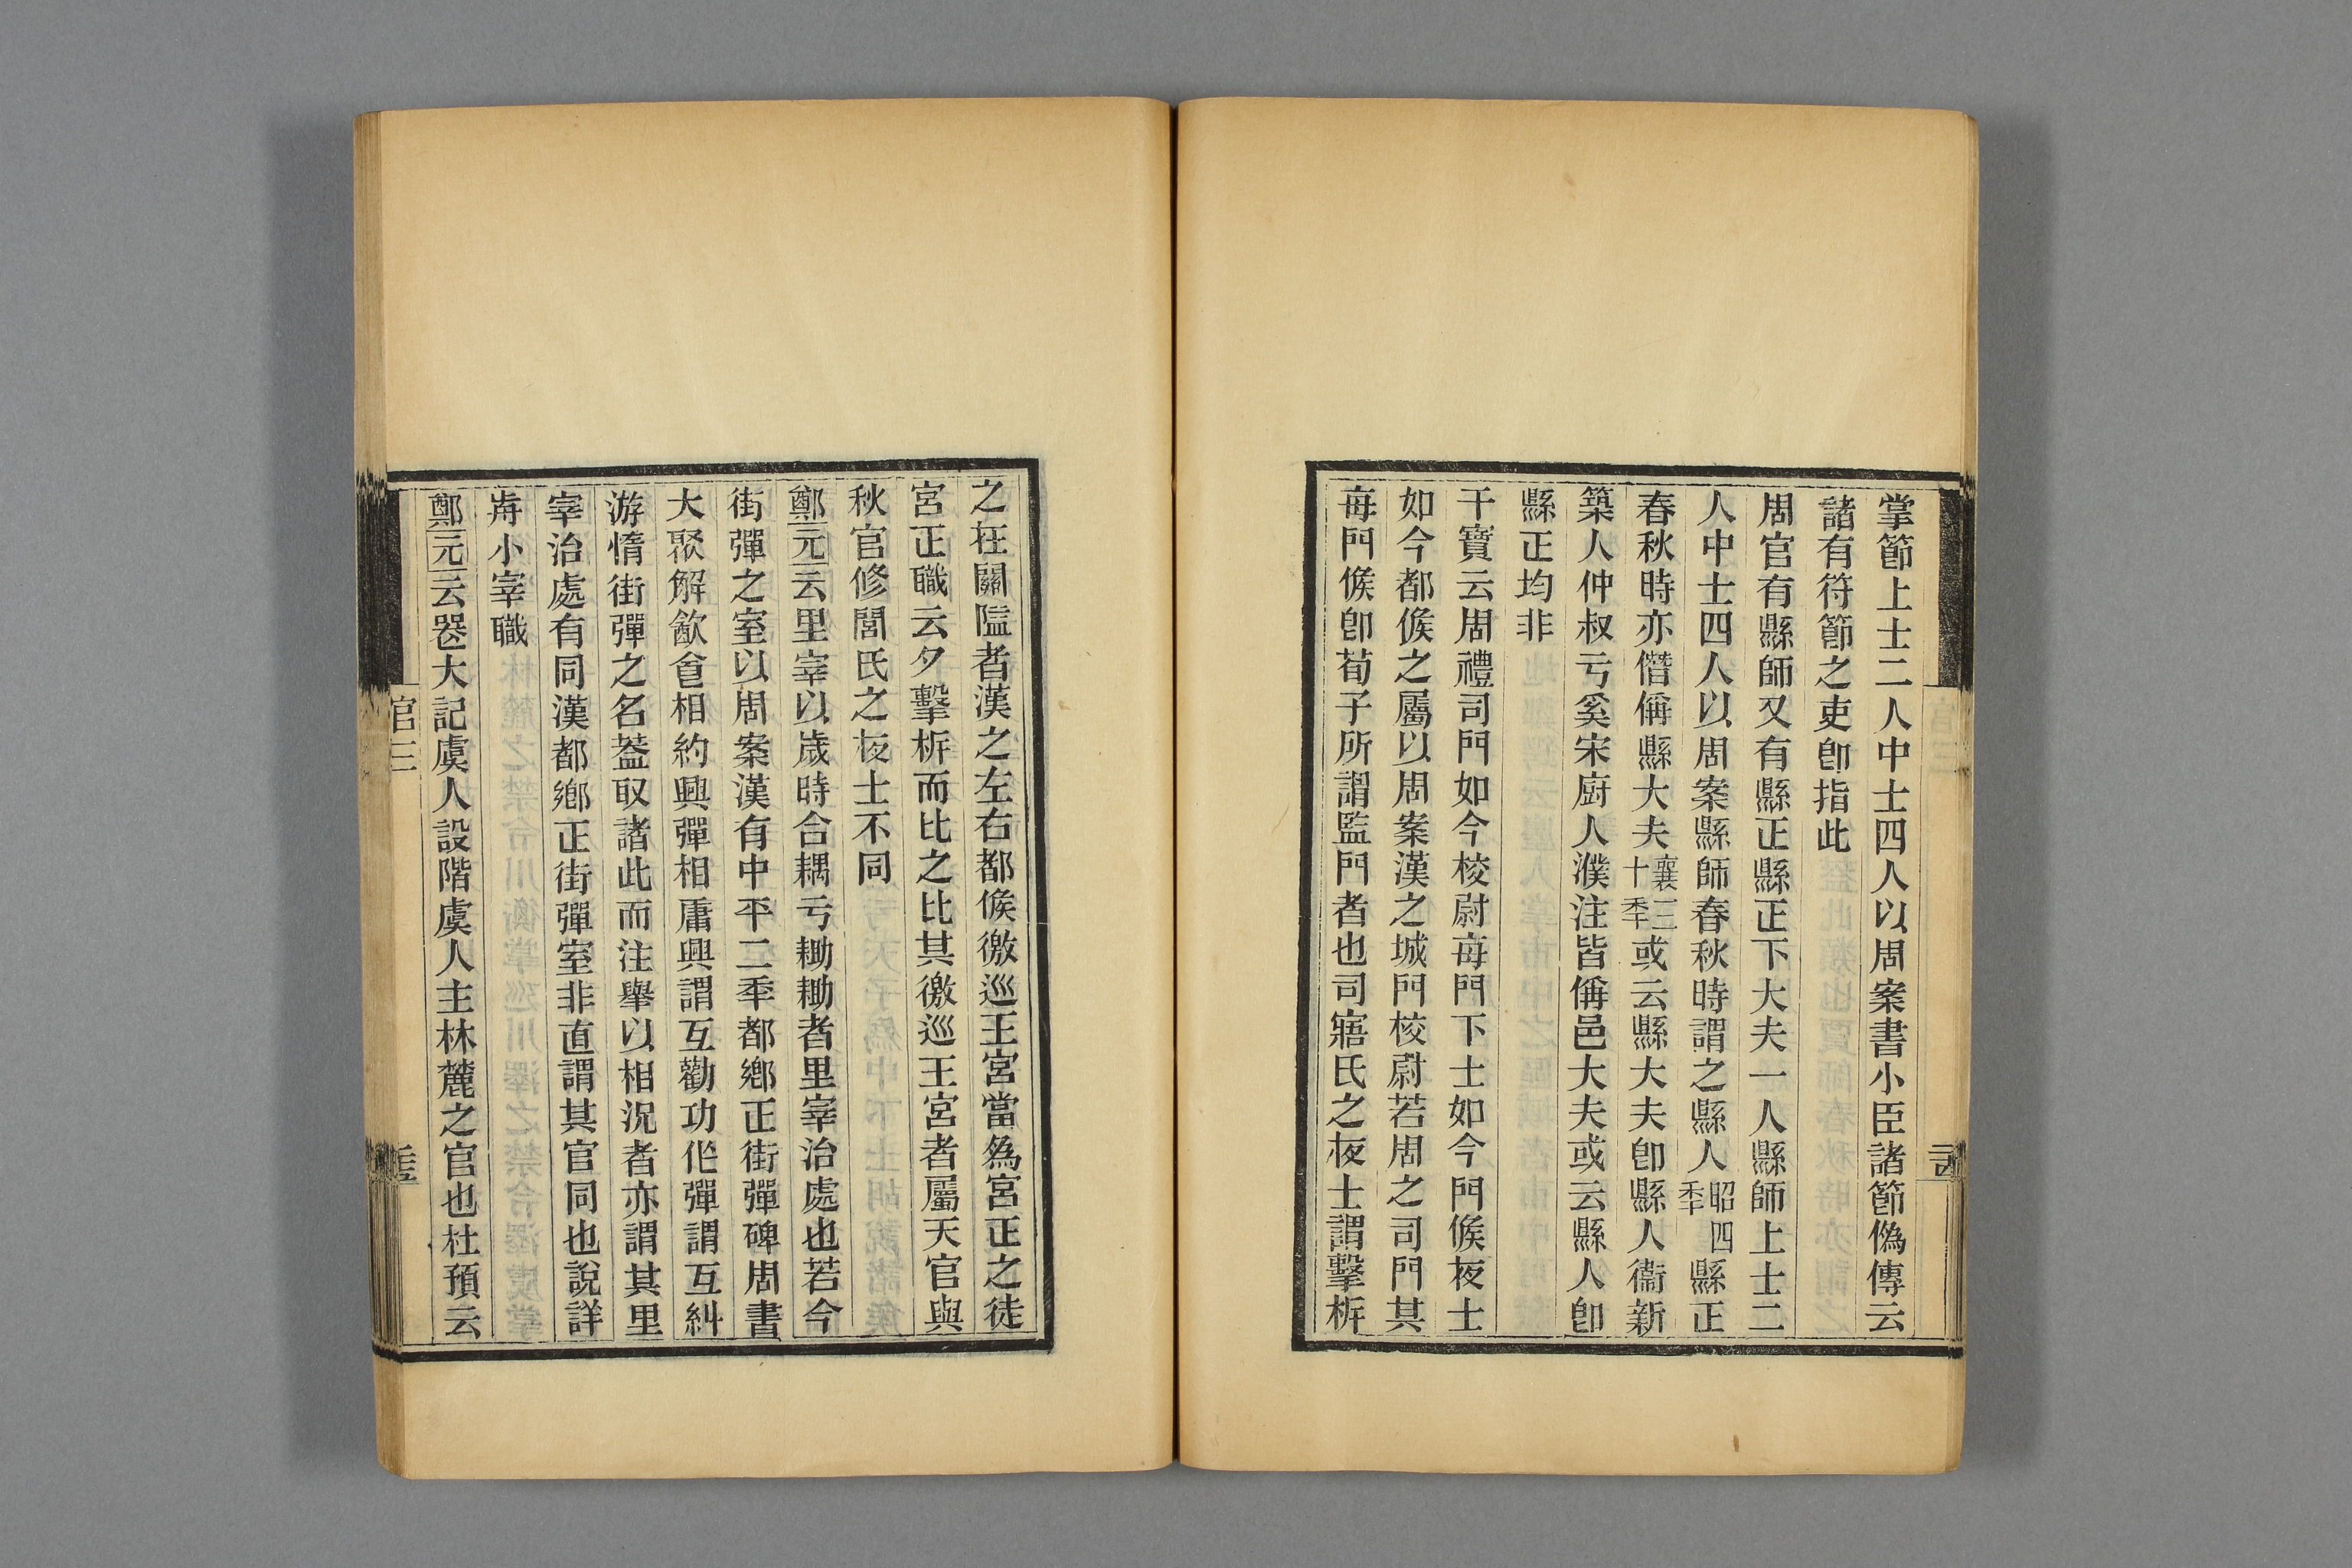 掌節上士二人中士四人以周案書小臣諸節僞傳云
諸有符節之吏卽指此
周官有縣師又有縣正縣正下大夫一人縣師上士二
人中士四人以周案縣師春秋時謂之縣人昭四秊縣正
春秋時亦僭偁縣大夫襄三十秊或云縣大夫卽縣人衞新
築人仲叔亏奚宋廚人濮注皆偁邑大夫或云縣人卽
縣正均非
干寶云周禮司門如今校尉每門下士如今門候夜士
如今都候之屬以周案漢之城門校尉若周之司門其
每門候卽荀子所謂監門者也司寤氏之夜士謂擊柝
之在關隘者漢之左右都候徼巡王宮當爲宮正之徒
宮正職云夕擊柝而比之比其徼巡王宮者屬天官與
秋官修閭氏之夜士不同
鄭元云里宰以歲時合耦亏耡耡者里宰治處也若今
街彈之室以周案漢有中平二秊都鄉正街彈碑周書
大聚解飮食相約興彈相庸興謂互勸功作彈謂互糾
游惰街彈之名葢取諸此而注舉以相況者亦謂其里
宰治處有同漢都鄉正街彈室非直謂其官同也說詳
歬小宰職
鄭元云喪大記虞人設階虞人主林麓之官也杜預云
官三